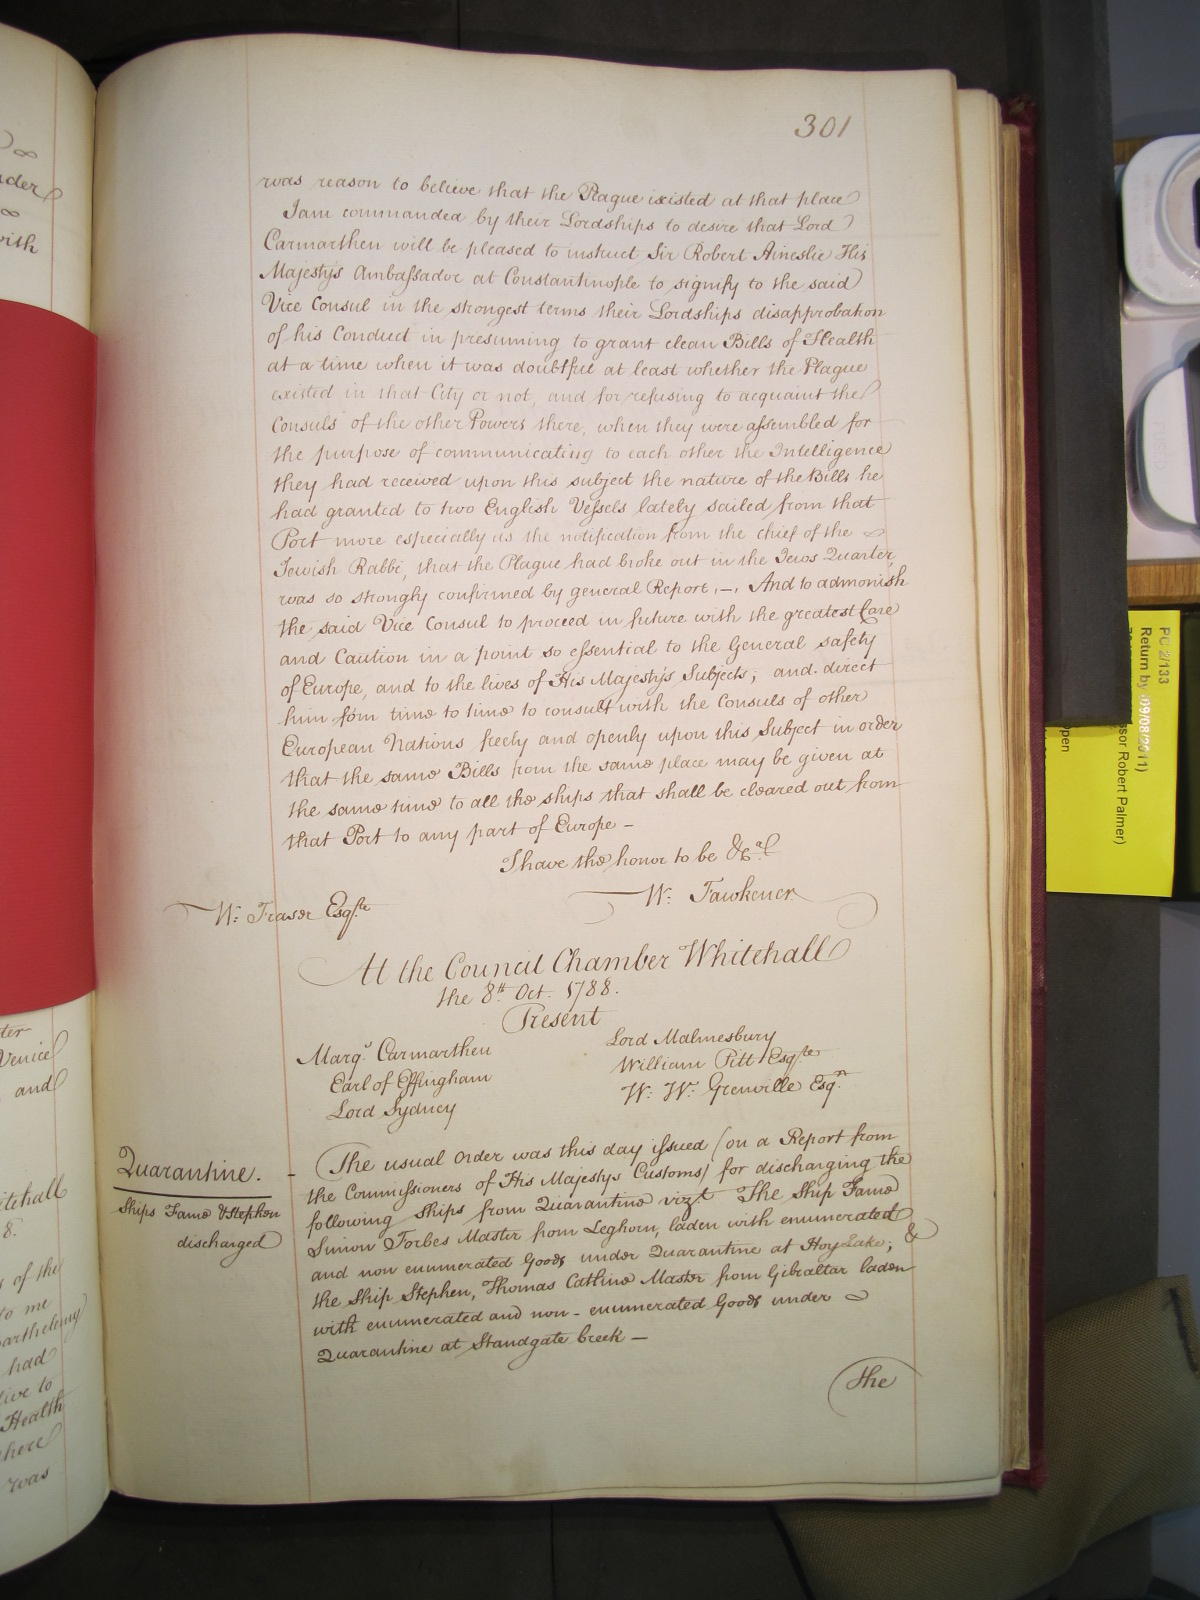 301
was reason to believe that the Plague existed at that place
I am commanded by their Lordships to desire that Lord
Carmarthen will be pleased to instruct Sir Robert Ainslie His
Majestys Ambassador at Constantinople to signify to the said
Vice Consul in the strongest terms their Lordships disapprobation
of his Conduct in presuming to grant clean Bills of Health
at a time when it was doubtful at least whether the Plague
existed in that City or not, and for refusing to acquaint the
Consuls of the other Powers there, when they were assembled for
the purpose of communicating to each other the Intelligence
they had received upon this subject the nature of the Bills he
had granted to two English Vessels lately sailed from that
Port more especially as the notification from the chief of the
Jewish Rabbi, that the Plague had broke out in the Jews Quarter,
was so strongly confirmed by general Report,—, And to admonish
the said Vice Consul to proceed in future with the greatest Care
and Caution in a point so essential to the General safety
of Europe, and to the lives of His Majesty's Subjects; and direct
him from time to time to consult with the Consuls of other
European Nations freely and openly upon this Subject in order
that the same Bills from the same place may be given at
the same time to all the ships that shall be cleared out from
that Port to any part of Europe –
I have the honor to be &ca
W: Fawkener
W: Fraser Esqre
At the Council Chamber Whitehall
the 8th Oct. 1788.
Present
Marqs Carmarthen
Earl of Effingham
Lord Sydney
Lord Malmesbury
William Pitt Esqre
W: W: Grenville Esqr
Quarantine.
Ships Fame & Stephen
discharged
– The usual Order was this day issued (on a Report from
the Commissioners of His Majestys Customs) for discharging the
following Ships from Quarantine vizt The Ship Fame
Simon Forbes Master from Leghorn, laden with enumerated
and non enumerated Goods under Quarantine at Hoy Lake; &
the Ship Stephen, Thomas Catline Master from Gibraltar laden
with enumerated and non-enumerated Goods under
Quarantine at Standgate Creek —
The
nder
with
ter
Venice
and
itehall
8.
of the
to me
arthelemy
had
live to
Health
here
was
PC 2/133
Return by (09/08/2011)
ssor Robert Palmer)
open